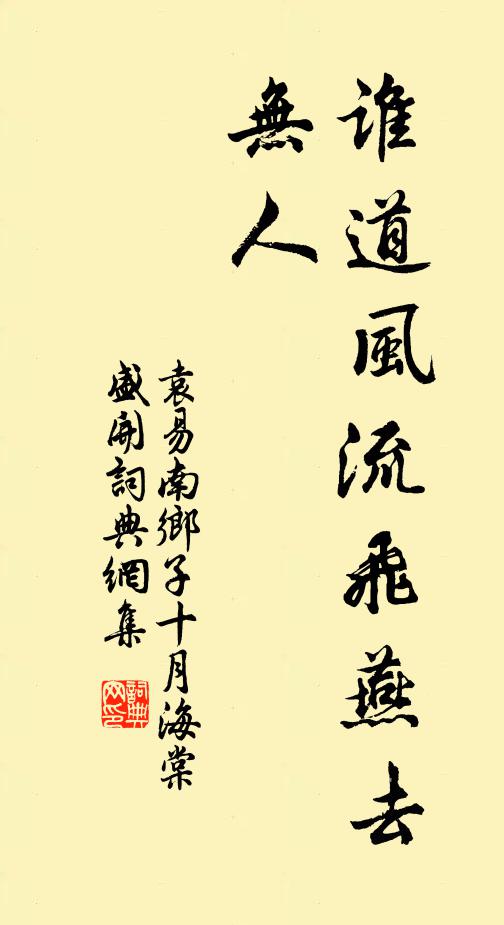 誰道風流飛燕去
無人
袁易南鄉子十月海棠
盛開詞典網集
詞典
网印